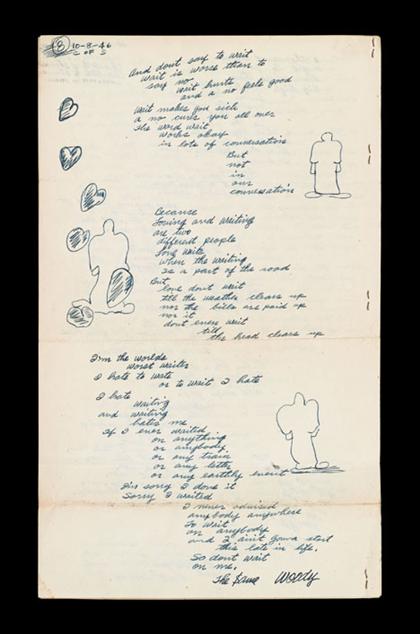 8 10-8-46
5 OF 5
And dont say to wait
wait is worse than to
say no
wait hurts
and a no feels good
wait makes you sick
a no cures you all over
The word wait
works okay
in lots of conversations
But
not
in
our
conversations
Because
Loving and waiting
are two
different people
Long waits
when the waiting
is a part of the road
But
love dont wait
till the weather clears up
nor the bills are paid up
nor it
dont even wait
till
the head clears up
I'm the worlds
worst waiter
I hate to wate
or to wait I hate
I hate
waiting
and waiting
hates me
If I ever waited
on anything
or anybody
or any train
or any letter
or any earthly event
I'm sorry I done it
Sorry I waited
I never advised
anybody anywhere
To wait
on anybody
and I ain't gonna start
this late in life.
So dont wait
on me.
The Same Woody